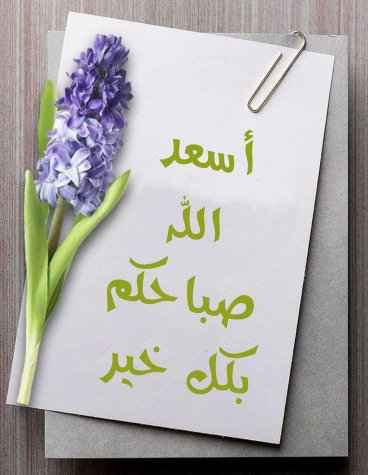 أسعد
الله
صباحكم
بكل خير